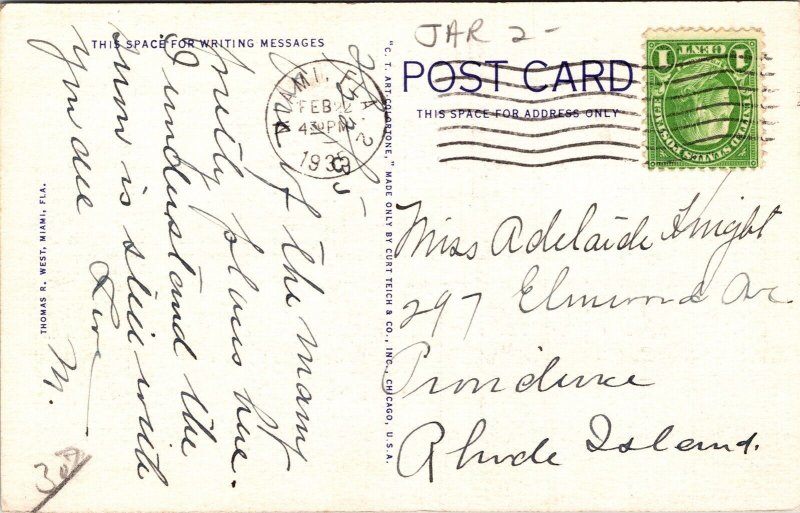 THIS SPACE FOR WRITING MESSAGES
of the many
pretty places here.
I understand the
gum is still with
you all
Love
M.
THOMAS R. WEST, MIAMI, FLA.
"C. T. ART-COLORTONE," MADE ONLY BY CURT TEICH & CO., INC., CHICAGO, U.S.A.
JAR 2-
POST CARD
THIS SPACE FOR ADDRESS ONLY
MIAMI, FLA.
FEB 2
4 30 PM
193
1 CENT 1
UNITED STATES POSTAGE
Miss Adelaide Knight
297 Elmwood Ave
Providence
Rhode Island.